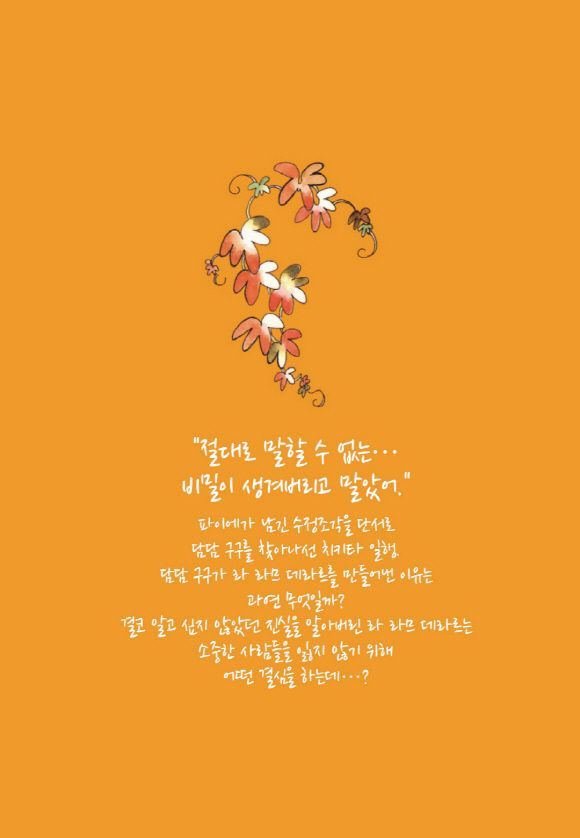 "절대로 말할 수 없는...
비밀이 생겨버리고 말았어."
파이에가 남긴 수정조각을 단서로
담담 구구를 찾아나선 치키타 일행.
담담 구구가 라 라므 데라르를 만들어낸 이유는
과연 무엇일까?
결코 알고 싶지 않았던 진실을 알아버린 라 라므 데라르는
소중한 사람들을 잃지 않기 위해
어떤 결심을 하는데...?